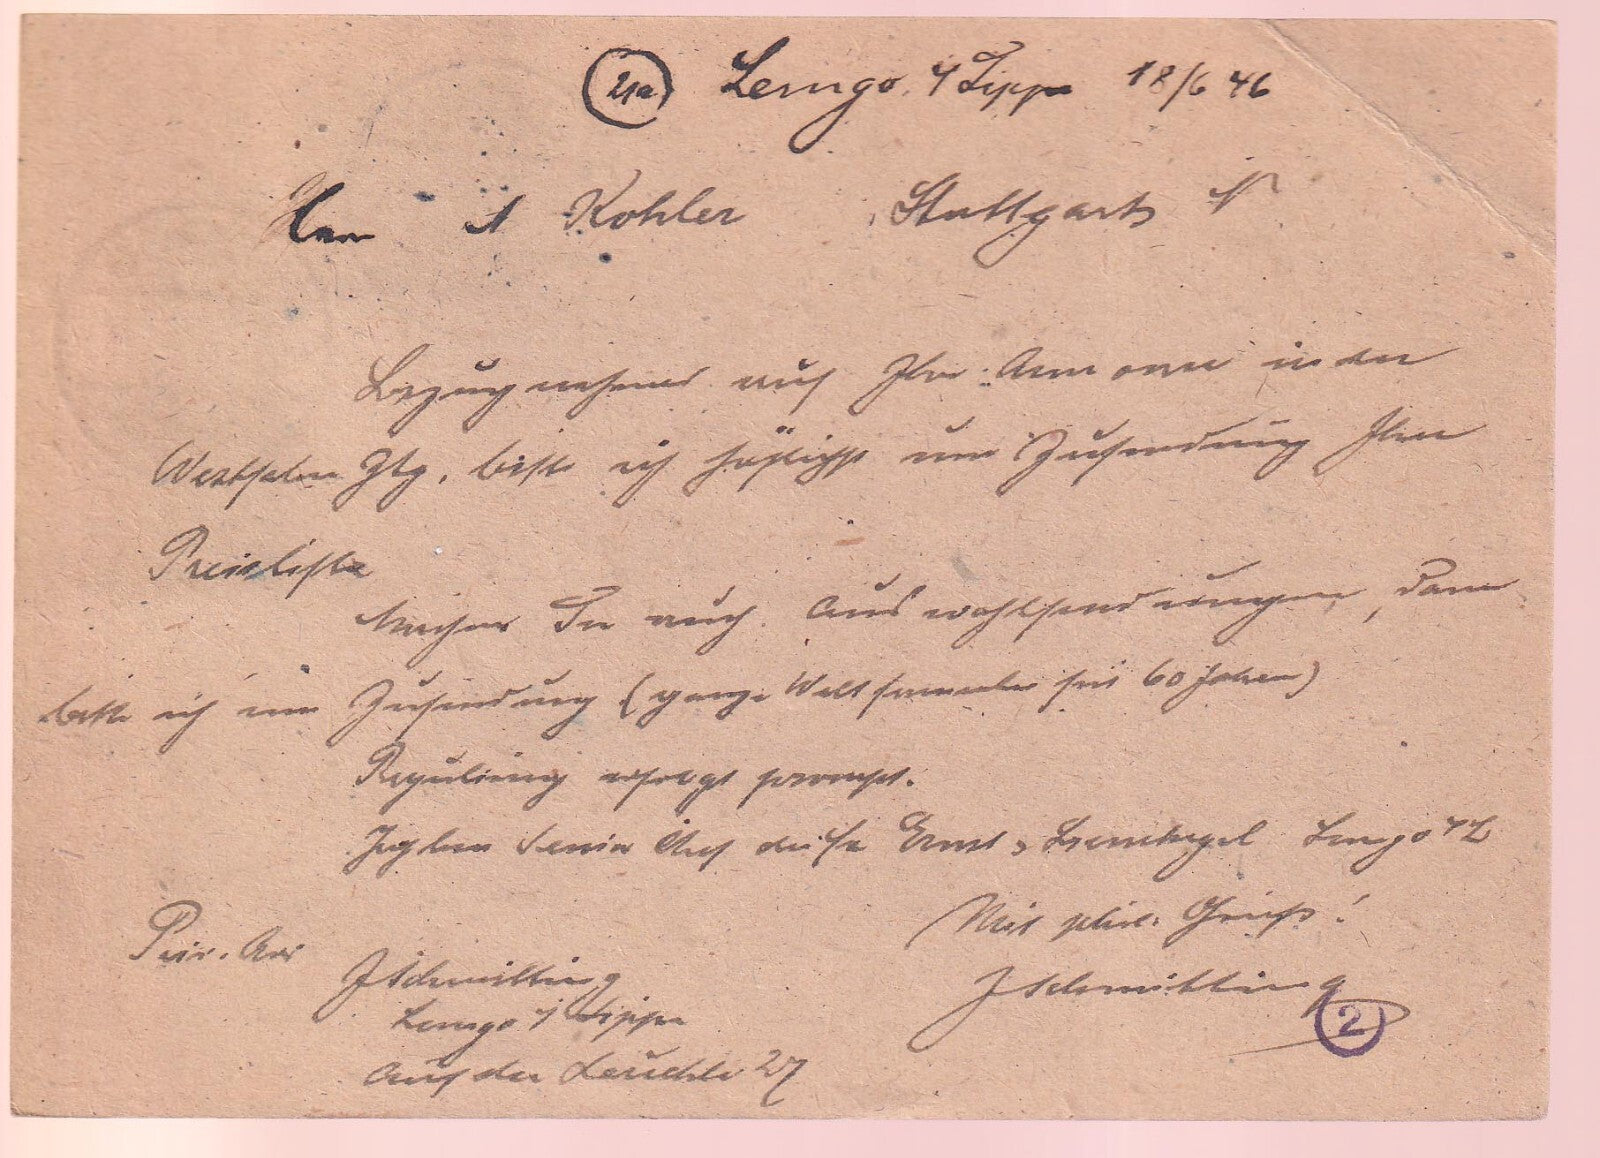 (21a) Lemgo i/Lippe 18/6 46
Herrn A Kohler Stuttgart N
Bezugnehmend auf Ihre Annonce in der
Westfalen Ztg, bitte ich höflichst um Zusendung Ihrer
Preisliste
Machen Sie auch Auswahlsendungen, dann
bitte ich um Zusendung (ganze Welt sammler seit 60 Jahren)
Regulierung erfolgt prompt.
Senior Chef der Fa Ernst Lemgo i/L
Mit phil. Gruß!
Priv. Adr
J Schmitting J Schmitting
Lemgo i/Lippe
Auf der Leuchte 27
2